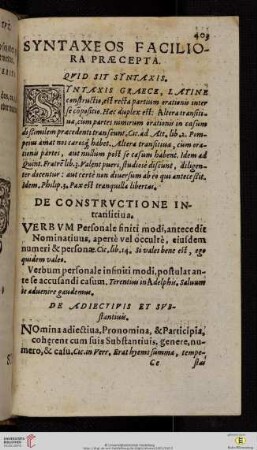 403
SYNTAXEOS FACILIO-
RA PRÆCEPTA.
QVID SIT SYNTAXIS.
SYNTAXIS GRAECE, LATINE
constructio, est recta partium orationis inter
se cõpositio. Hæc duplex est: Altera transiti-
ua, cum partes numerum orationis in casum
dissimilem præcedenti transeunt, Cic. ad Att. lib. 2. Pom-
peius amat nos carosq; habet. Altera
partei, aut nullum post se casum habent. Idem ad
Quint. Fratrẽ lib. 3. Valent pueri, studiosè discunt, diligen-
ter docentur: aut certè non diuersum ab eo qui antecessit.
Idem, Philip. 3. Pax est tranquilla libertas.
DE CONSTRVCTIONE IN-
transitiua.
VERBVM Personale finiti modi, antecedit
Nominatiuus, apertè vel occultè, eiusdem
numeri & personæ Cic. lib. 14. Si vales bene est, ego
quidem valeo.
Verbum personale infiniti modi, postulat an-
te se accusandi casum. Terentius in Adelphis. Saluum
te aduenire gaudemus.
DE ADIECTIVIS ET SVB-
stantiuis.
NOmina adiectiua, Pronomina, & Participia,
cohęrent cum suis Substantiuis, genere, nu-
mero, & casu. Cic. in Verr. Erat hyems summa, tempe-
Cc stas